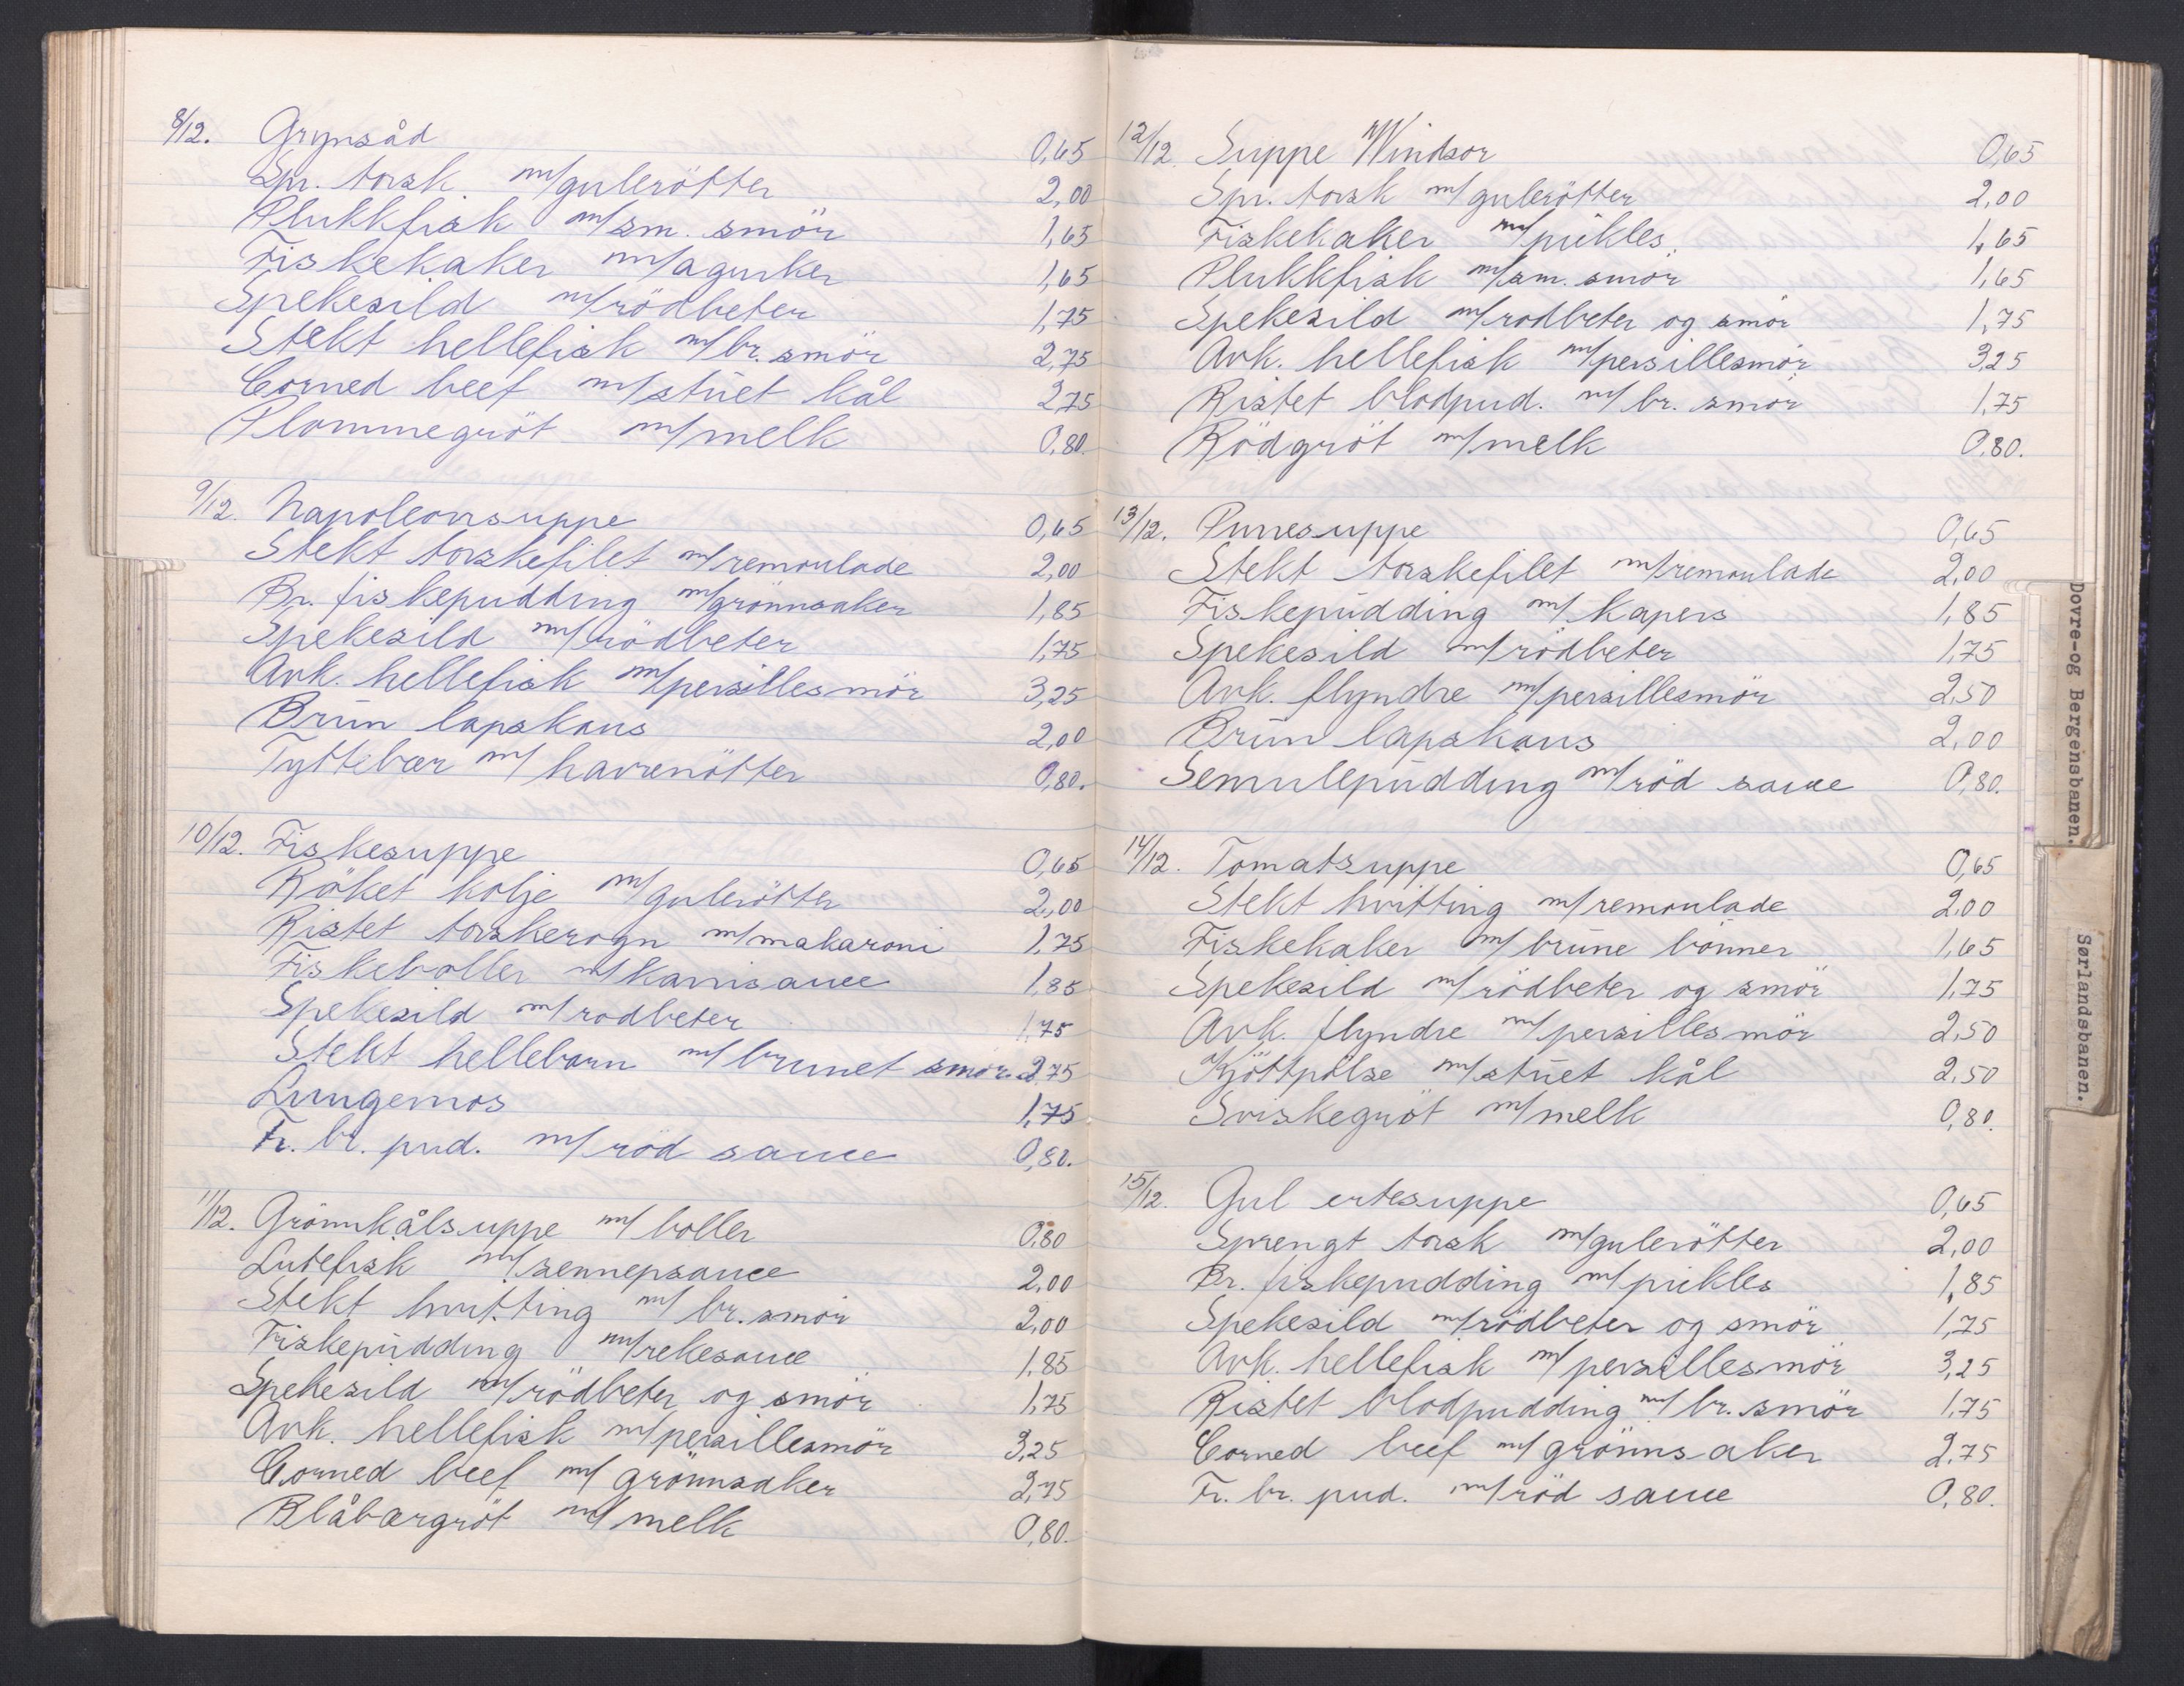 8/12. Grynsåd 0,65
Spr. torsk m/gulerötter 2,00
Plukkfisk m/sm. smör 1,65
Fiskekaker m/agurker 1,65
Spekesild m/rödbeter 1,75
Stekt hellefisk m/br. smör 2,75
Corned beef m/stuet kål 2,75
Plommegröt m/melk 0,80.
9/12. Napoleonsuppe 0,65
Stekt torskefilet m/remoulade 2,00
Br. fiskepudding m/grönnsaker 1,85
Spekesild m/rödbeter 1,75
Avk. hellefisk m/persillesmör 3,25
Brun lapskaus 2,00
Tyttebær m/havrenötter 0,80.
10/12. Fiskesuppe 0,65
Röket kolje m/gulerötter 2,00
Ristet torskerogn m/makaroni 1,75
Fiskeboller m/karrisauce 1,85
Spekesild m/rodbeter 1,75
Stekt hellebarn m/brunet smör 2,75
Lungemos 1,75
Fr. br. pud. m/röd sauce 0,80.
11/12. Grönnkålsuppe m/boller 0,80
Lutefisk m/sennepsauce 2,00
Stekt hvitting m/br. smör 2,00
Fiskepudding m/rekesauce 1,85
Spekesild m/rödbeter og smör 1,75
Avk. hellefisk m/persillesmör 3,25
Corned beef m/grönnsaker 2,75
Blåbærgröt m/melk 0,80.
12/12. Suppe Windsor 0,65
Spr. torsk m/gulerötter 2,00
Fiskekaker m/pickles. 1,65
Plukkfisk m/sm. smör 1,65
Spekesild m/rodbeter og smör 1,75
Avk. hellefisk m/persillesmör 3,25
Ristet blodpud. m/br. smör 1,75
Rödgröt m/melk 0,80.
13/12. Purresuppe 0,65
Stekt torskefilet m/remoulade 2,00
Fiskepudding m/kapers 1,85
Spekesild m/rödbeter 1,75
Avk. flyndre m/persillesmör 2,50
Brun lapskaus 2,00
Semulepudding m/röd sauce 0,80.
14/12. Tomatsuppe 0,65
Stekt hvitting m/remoulade 2,00
Fiskekaker m/brune bönner 1,65
Spekesild m/rödbeter og smör 1,75
Avk. flyndre m/persillesmör 2,50
Kjöttpölse m/stuet kål 2,50
Sviskegröt m/melk 0,80.
15/12. Gul ertesuppe 0,65
Sprengt torsk m/gulerötter 2,00
Br. fiskepudding m/pickles 1,85
Spekesild m/rödbeter og smör 1,75
Avk. hellefisk m/persillesmör 3,25
Ristet blodpudding m/br. smör 1,75
Corned beef m/grönnsaker 2,75
Fr. br. pud. m/röd sauce 0,80.
Dovre-og Bergensbanen.
Sørlandsbanen.